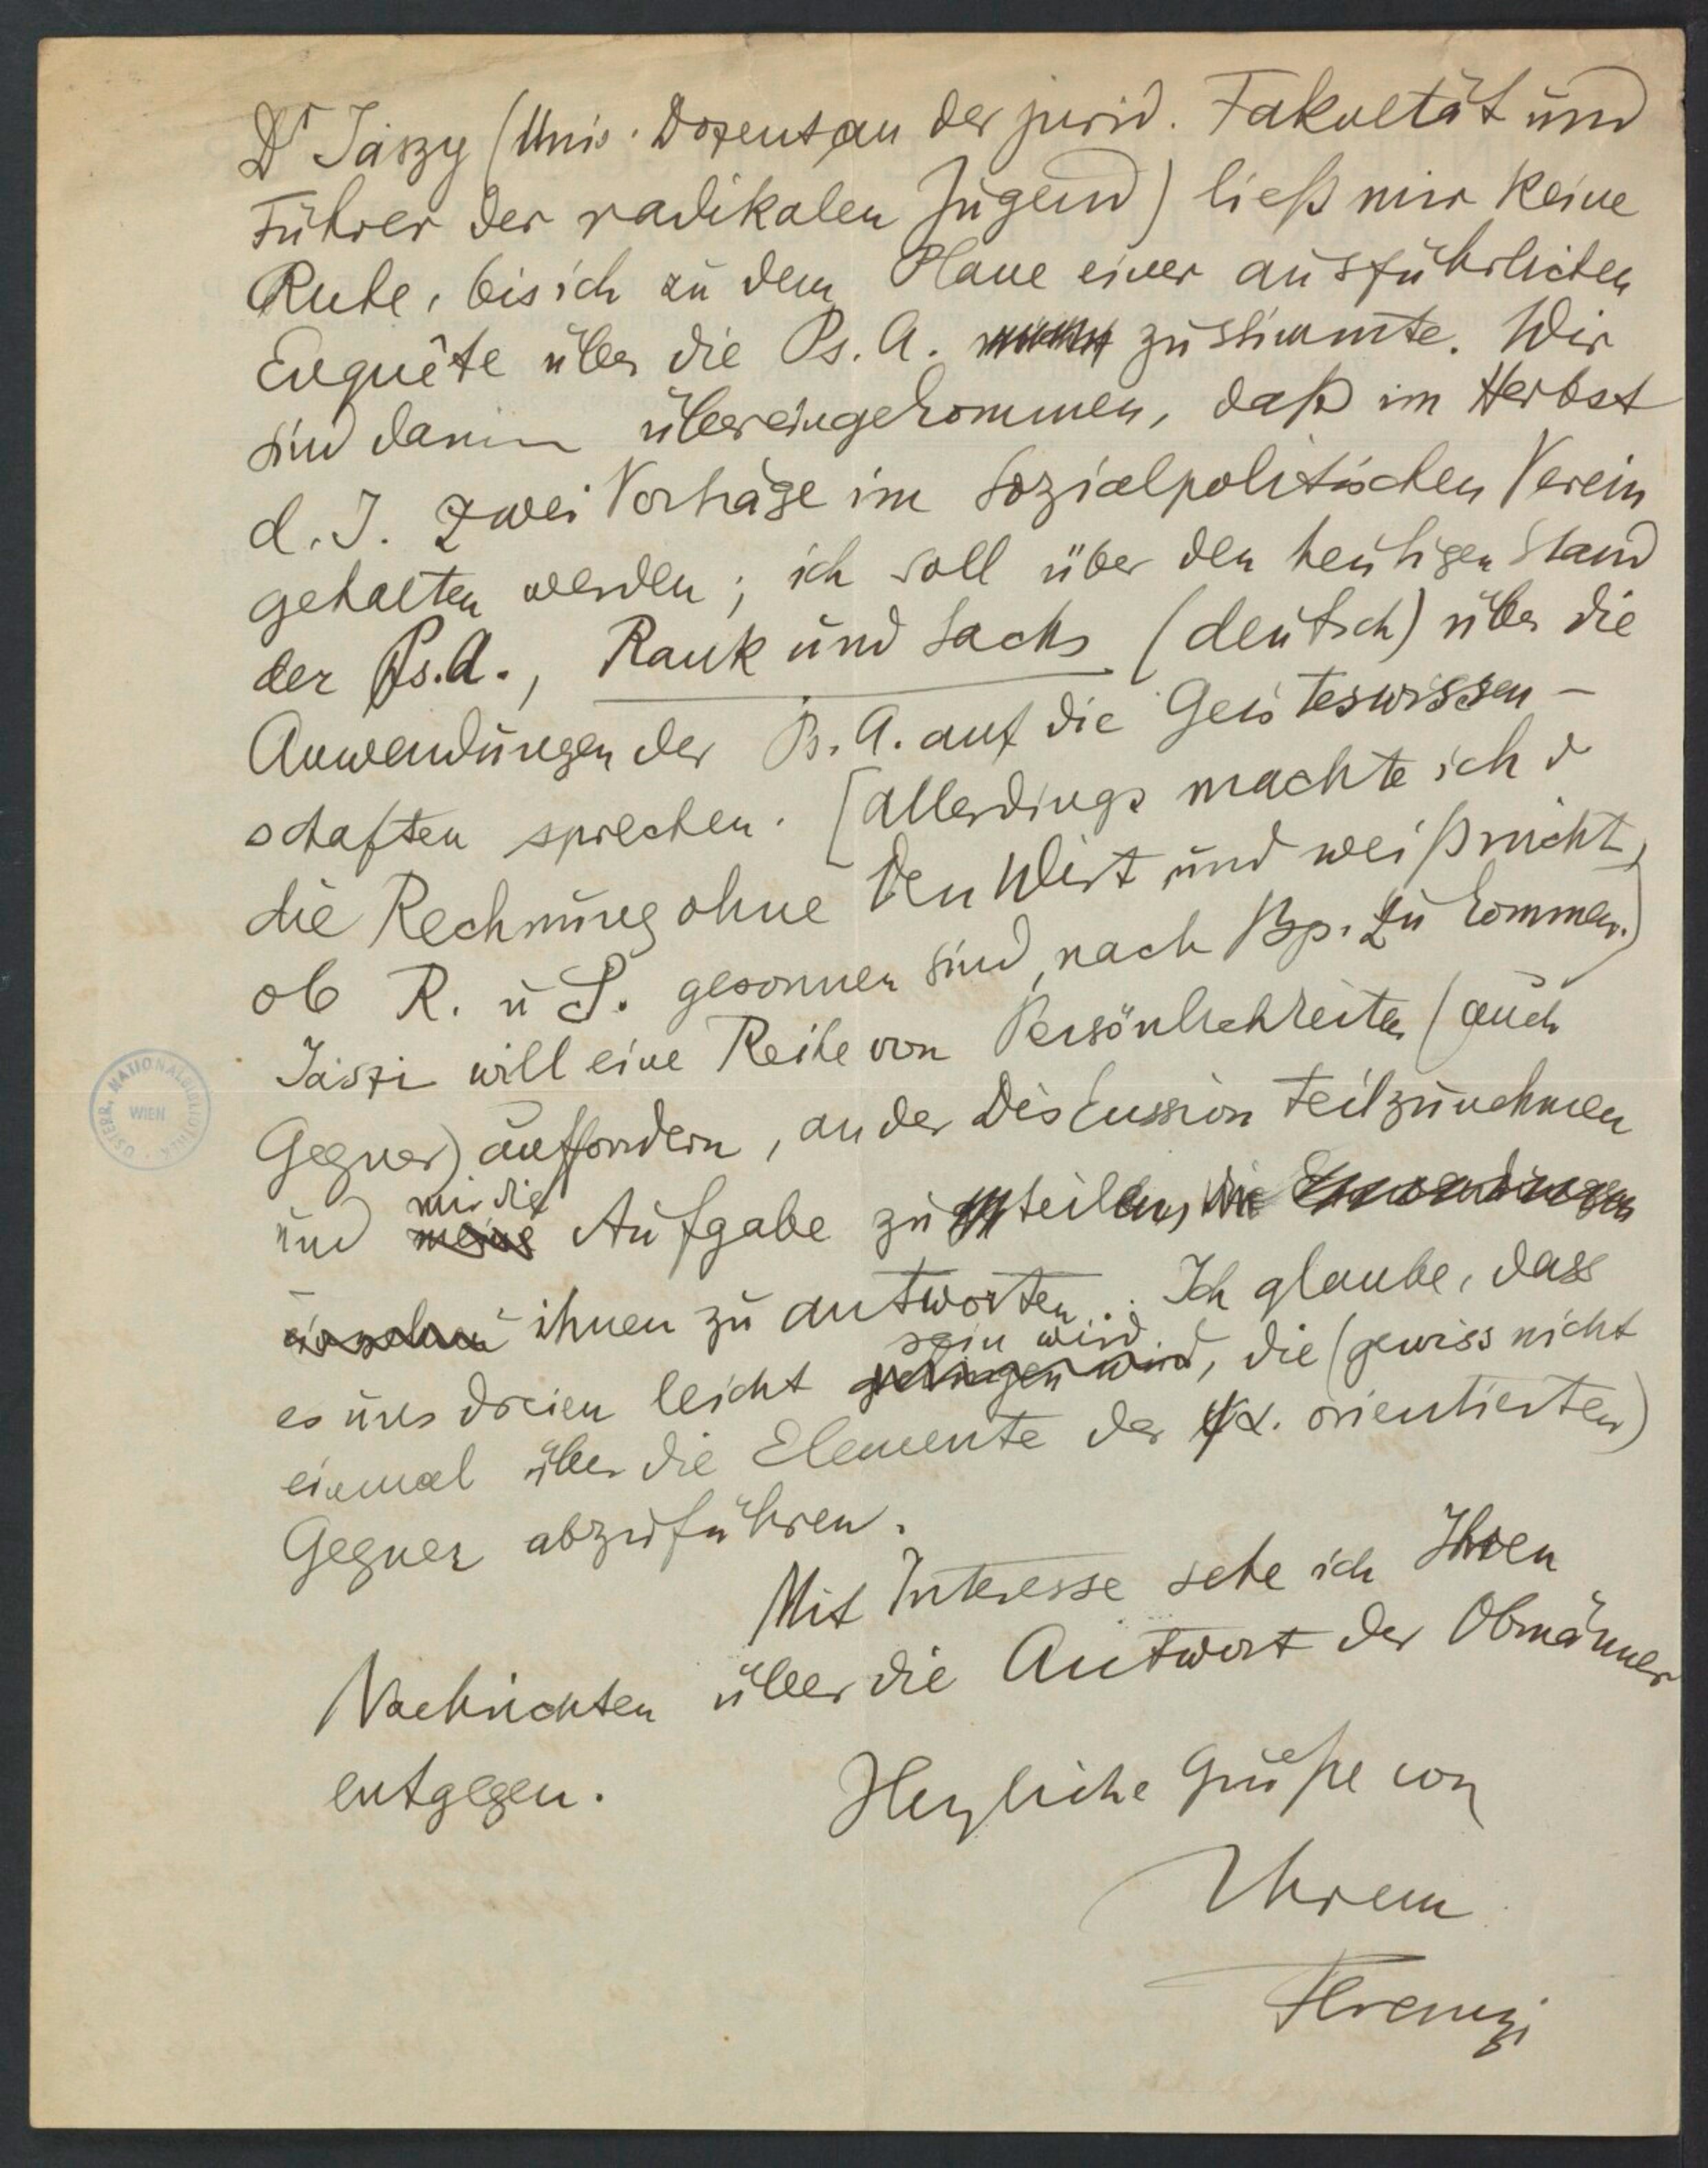 Dr Jászy (Univ. Dozent an der jurid. Fakultät und
Führer der radikalen Jugend) ließ mir keine
Ruhe, bis ich zu dem Plane einer ausführlichen
Enquête über die Ps. A. zustimmte. Wir
sind darin übereingekommen, daß im Herbst
d. J. zwei Vorträge im Sozialpolitischen Verein
gehalten werden; ich soll über den heutigen Stand
der Ps.A., Rank und Sachs (deutsch) über die
Anwendungen der Ps. A. auf die Geisteswissen-
schaften sprechen. [allerdings machte ich
die Rechnung ohne den Wirt und weiß nicht,
ob R. u S. gesonnen sind, nach Bp. zu kommen.)
Jászi will eine Reihe von Persönlichkeiten (auch
Gegner) auffordern, an der Diskussion teilzunehmen
mir die
und meine Aufgabe zu teilen, die Einwendungen
einzelnen ihnen zu antworten. Ich glaube, dass
sein wird
es uns dreien leicht gelingen wird, die (gewiss nicht
einmal über die Elemente der ψα. orientierten)
Gegner abzuführen.
Mit Interesse sehe ich Ihren
Nachrichten über die Antwort der Obmänner
entgegen.
Herzliche Grüße von
Ihrem
Ferenczi
ÖSTERR. NATIONALBIBLIOTHEK
WIEN